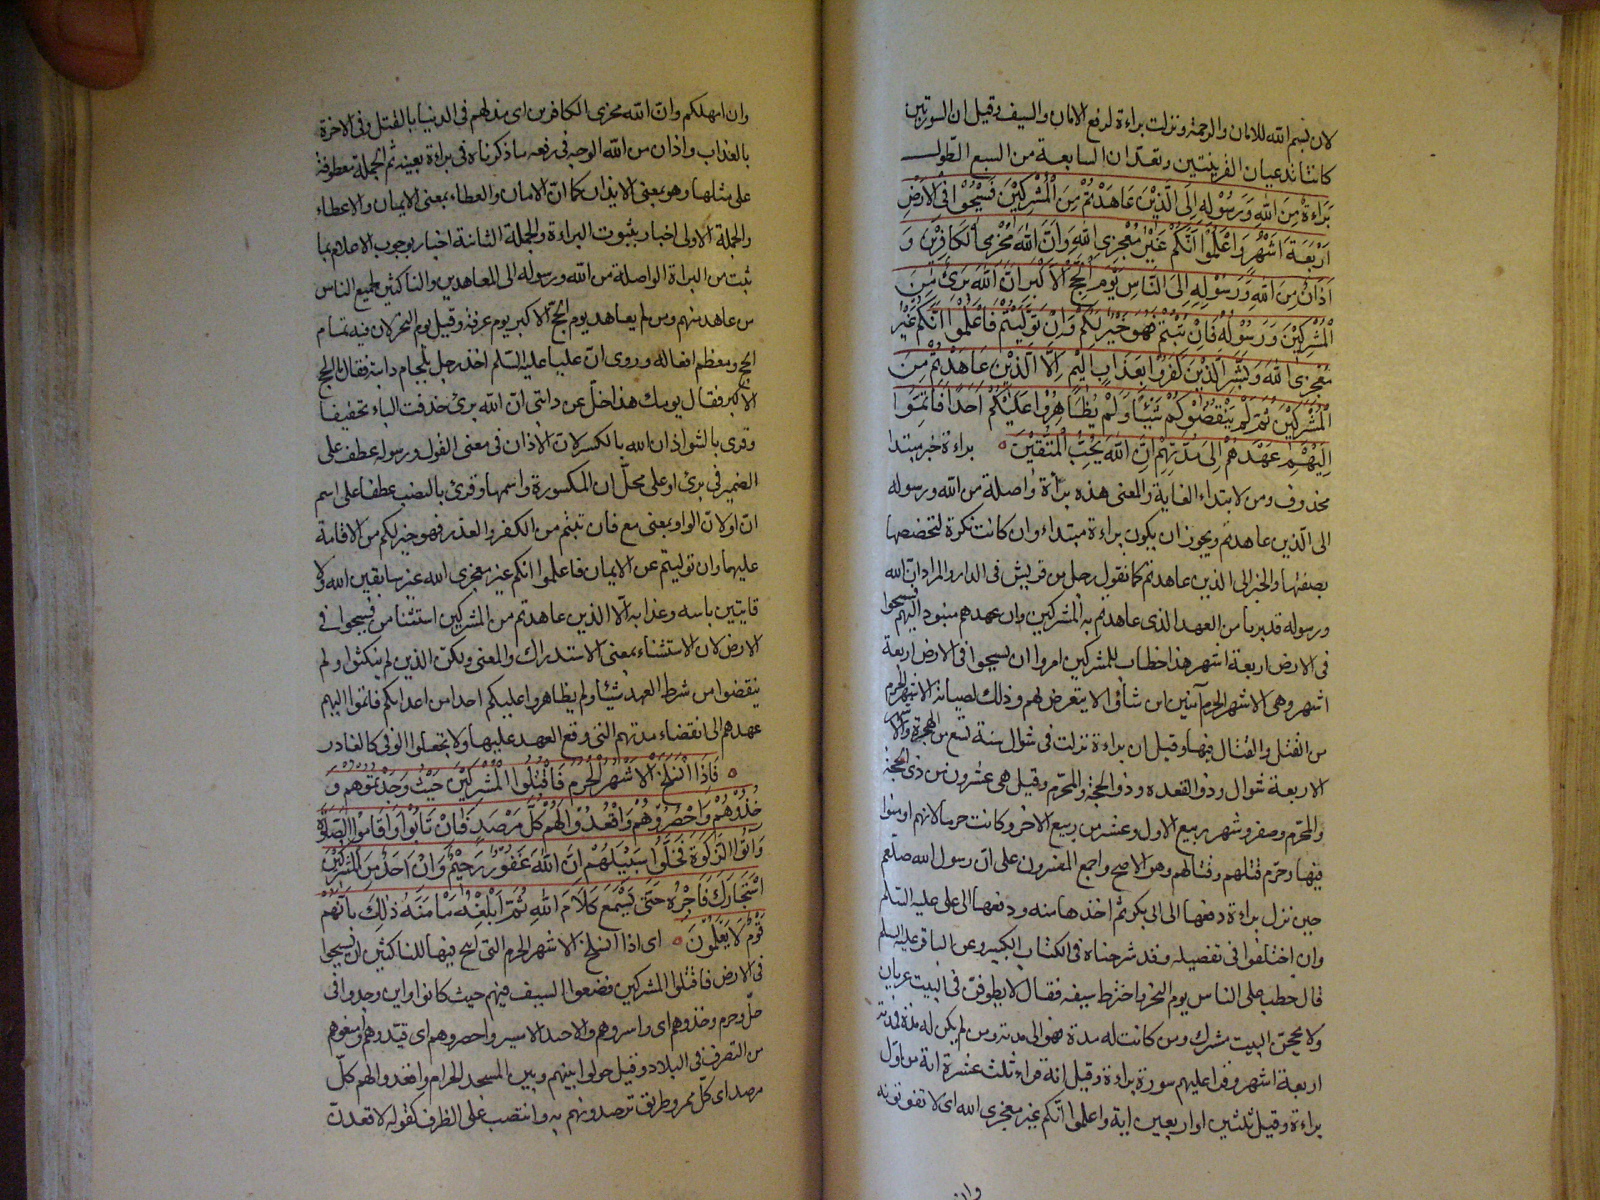 لان بسم الله للامان والرحمة ونزلت براءة لرفع الامان والسيف وقيل ان السورتين
كانتا تدعيان القرينتين وتعدان السابعة من السبع الطول
بَرَاءَةٌ مِنَ اللهِ وَرَسُولِهِ اِلَى الَّذِينَ عَاهَدْتُمْ مِنَ الْمُشْرِكِينَ فَسِيحُوا فِى الْاَرْضِ
اَرْبَعَةَ اَشْهُرٍ وَاعْلَمُوا اَنَّكُمْ غَيْرُ مُعْجِزِى اللهِ وَاَنَّ اللهَ مُخْزِى الْكَافِرِينَ وَ
اَذَانٌ مِنَ اللهِ وَرَسُولِهِ اِلَى النَّاسِ يَوْمَ الْحَجِّ الْاَكْبَرِ اَنَّ اللهَ بَرِىءٌ مِنَ
الْمُشْرِكِينَ وَرَسُولُهُ فَاِنْ تُبْتُمْ فَهُوَ خَيْرٌ لَكُمْ وَاِنْ تَوَلَّيْتُمْ فَاعْلَمُوا اَنَّكُمْ غَيْرُ
مُعْجِزِى اللهِ وَبَشِّرِ الَّذِينَ كَفَرُوا بِعَذَابٍ اَلِيمٍ اِلَّا الَّذِينَ عَاهَدْتُمْ مِنَ
الْمُشْرِكِينَ ثُمَّ لَمْ يَنْقُصُوكُمْ شَيْئًا وَلَمْ يُظَاهِرُوا عَلَيْكُمْ اَحَدًا فَاَتِمُّوا
اِلَيْهِمْ عَهْدَهُمْ اِلَى مُدَّتِهِمْ اِنَّ اللهَ يُحِبُّ الْمُتَّقِينَ براءة خبر مبتدا
محذوف ومن لابتداء الغاية والمعنى هذه براءة واصلة من الله ورسوله
الى الذين عاهدتم ويجوز ان يكون براءة مبتداء وان كانت نكرة لتخصصها
بصفتها والخبر الى الذين عاهدتم كما تقول رجل من قريش فى الدار والمراد ان الله
ورسوله قد بريا من العهد الذى عاهدتم به المشركين وان عهدهم منبوذ اليهم فسيحوا
فى الارض اربعة اشهر هذا خطاب للمشركين امروا ان يسيحوا فى الارض اربعة
اشهر وهى الاشهر الحرم آمنين اين شاؤا لا يتعرض لهم وذلك لصيانة الاشهر الحرم
من القتل والقتال فيها وقيل ان براءة نزلت فى شوال سنة تسع من الهجرة والاشهر
الاربعة شوال وذو القعدة وذو الحجة والمحرم وقيل هى عشرون من ذى الحجة
والمحرم وصفر وشهر ربيع الاول وعشر من ربيع الاخر وكانت حرما لانهم اومنوا
فيها وحرم قتلهم وقتالهم وهو الاصح واجمع المفسرون على ان رسول الله صلعم
حين نزل براءة دفعها الى ابى بكر ثم اخذها منه ودفعها الى على عليه السلم
وان اختلفوا فى تفصيله وقد شرحناه فى الكتاب الكبير وعن الباقر عليه السلم
قال خطب على الناس يوم النحر واخترط سيفه فقال لا يطوفن فى البيت عريان
ولا يحجن البيت مشرك ومن كانت له مدة فهو الى مدته ومن لم يكن له مدة فمدته
اربعة اشهر وقرا عليهم سورة براءة وقيل انه قراء ثلث عشرة اية من اول
براءة وقيل ثلثين او اربعين اية واعلموا انكم غير معجزى الله اى لا تفوتونه
وان
وان امهلكم وان الله مخزى الكافرين اى مذلهم فى الدنيا بالقتل وفى الاخرة
بالعذاب واذان من الله الوجه فى رفعه ما ذكرناه فى براءة بعينه ثم الجملة معطوفة
على مثلها وهو بمعنى الايذان كما ان الامان والعطاء بمعنى الايمان والاعطاء
والجملة الاولى اخبار بثبوت البراءة والجملة الثانية اخبار بوجوب الاعلام بما
ثبت من البراءة الواصلة من الله ورسوله الى المعاهدين والناكثين لجميع الناس
من عاهد منهم ومن لم يعاهد يوم الحج الاكبر يوم عرفة وقيل يوم النحر لان فيه تمام
الحج ومعظم افعاله وروى ان عليا عليه السلم اخذ رجل بلجام دابته فقال ما الحج
الاكبر فقال يومك هذا خل عن دابتى ان الله برىء حذفت الباء تخفيفا
وقرى بالشواذ ان الله بالكسر لان الاذان فى معنى القول ورسوله عطف على
الضمير فى برىء او على محل ان المكسورة واسمها وقرىء بالنصب عطفا على اسم
ان او لان الواو بمعنى مع فان تبتم من الكفر والغدر فهو خير لكم من الاقامة
عليهما وان توليتم عن الايمان فاعلموا انكم غير معجزى الله غير سابقين الله ولا
فايتين باسه وعذابه الا الذين عاهدتم من المشركين استثنا من فسيحوا فى
الارض لان الاستثناء بمعنى الاستدراك والمعنى ولكن الذين لم ينكثوا ولم
ينقضوا من شرط العهد شيئا ولم يظاهروا عليكم احدا من اعدائكم فاتموا اليهم
عهدهم الى انقضاء مدتهم التى وقع العهد عليها ولا تجعلوا الوفى كالغادر
فَاِذَا انْسَلَخَ الْاَشْهُرُ الْحُرُمُ فَاقْتُلُوا الْمُشْرِكِينَ حَيْثُ وَجَدْتُمُوهُمْ وَ
خُذُوهُمْ وَاحْصُرُوهُمْ وَاقْعُدُوا لَهُمْ كُلَّ مَرْصَدٍ فَاِنْ تَابُوا وَاَقَامُوا الصَّلٰوةَ
وَآتَوُا الزَّكٰوةَ فَخَلُّوا سَبِيلَهُمْ اِنَّ اللهَ غَفُورٌ رَحِيمٌ وَاِنْ اَحَدٌ مِنَ الْمُشْرِكِينَ
اسْتَجَارَكَ فَاَجِرْهُ حَتَّى يَسْمَعَ كَلَامَ اللهِ ثُمَّ اَبْلِغْهُ مَاْمَنَهُ ذٰلِكَ بِاَنَّهُمْ
قَوْمٌ لَا يَعْلَمُونَ اى اذا انسلخ الاشهر الحرم التى ابيح فيها للناكثين ان يسيحوا
فى الارض فاقتلوا المشركين فضعوا السيف فيهم حيث كانوا واين وجدوا فى
حل وحرم وخذوهم اى واسروهم والاخيذ الاسير واحصروهم اى قيدوهم وامنعوهم
من التصرف فى البلاد وقيل حولوا بينهم وبين المسجد الحرام واقعدوا لهم كل
مرصد اى كل ممر وطريق ترصدونهم به وانتصب على الظرف كقوله لاقعدن